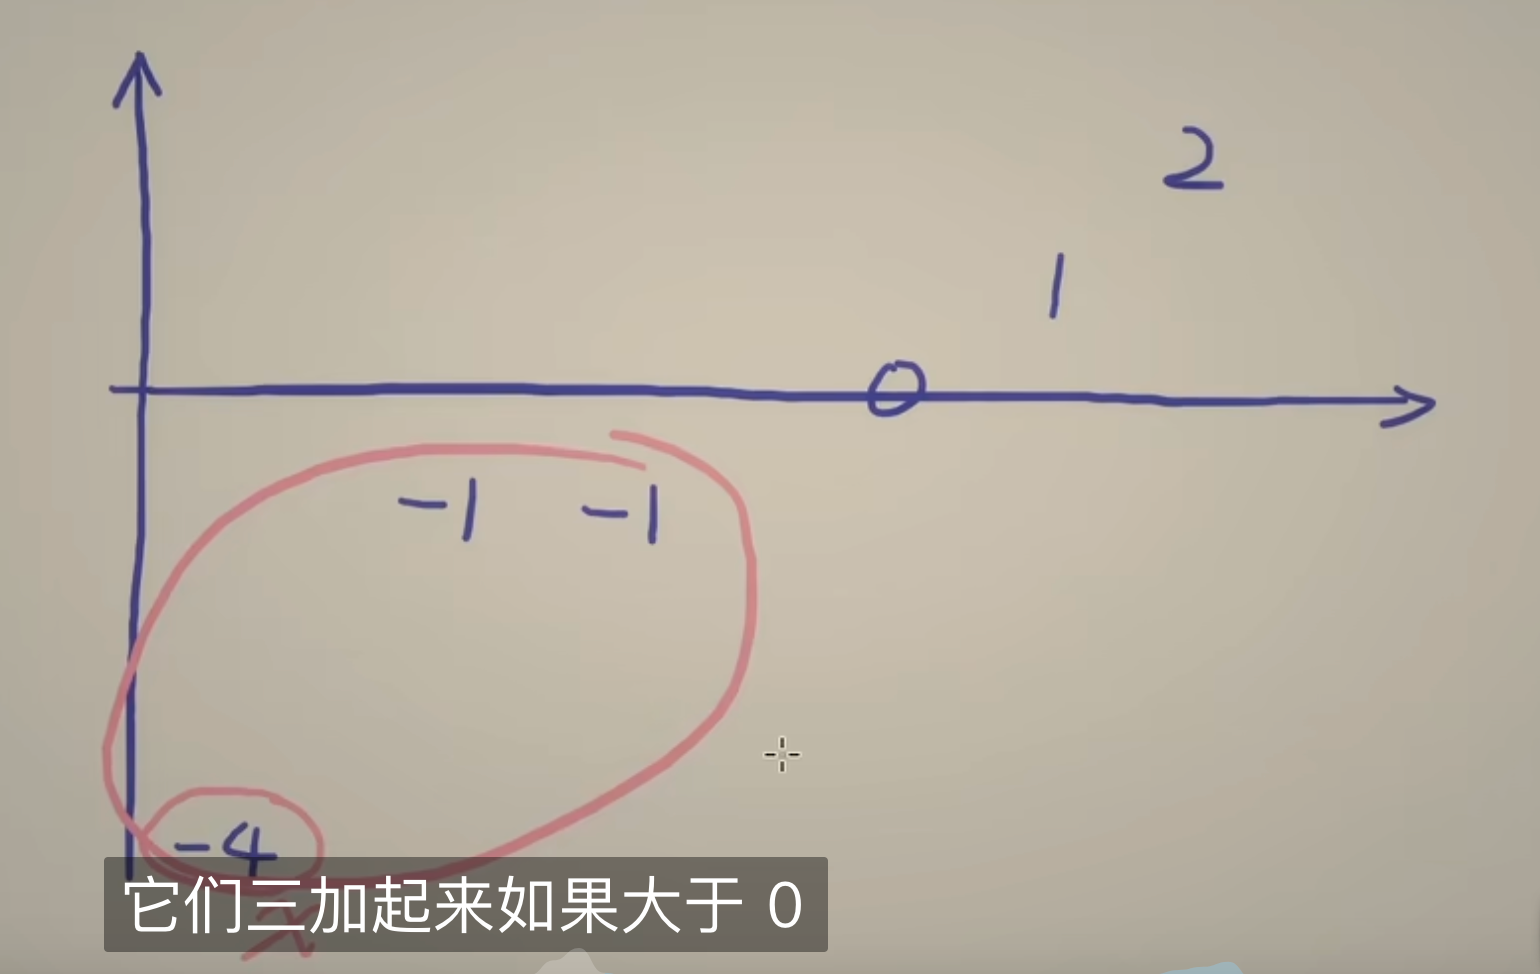 2
1
0
-1 -1
-4
它们三加起来如果大于 0